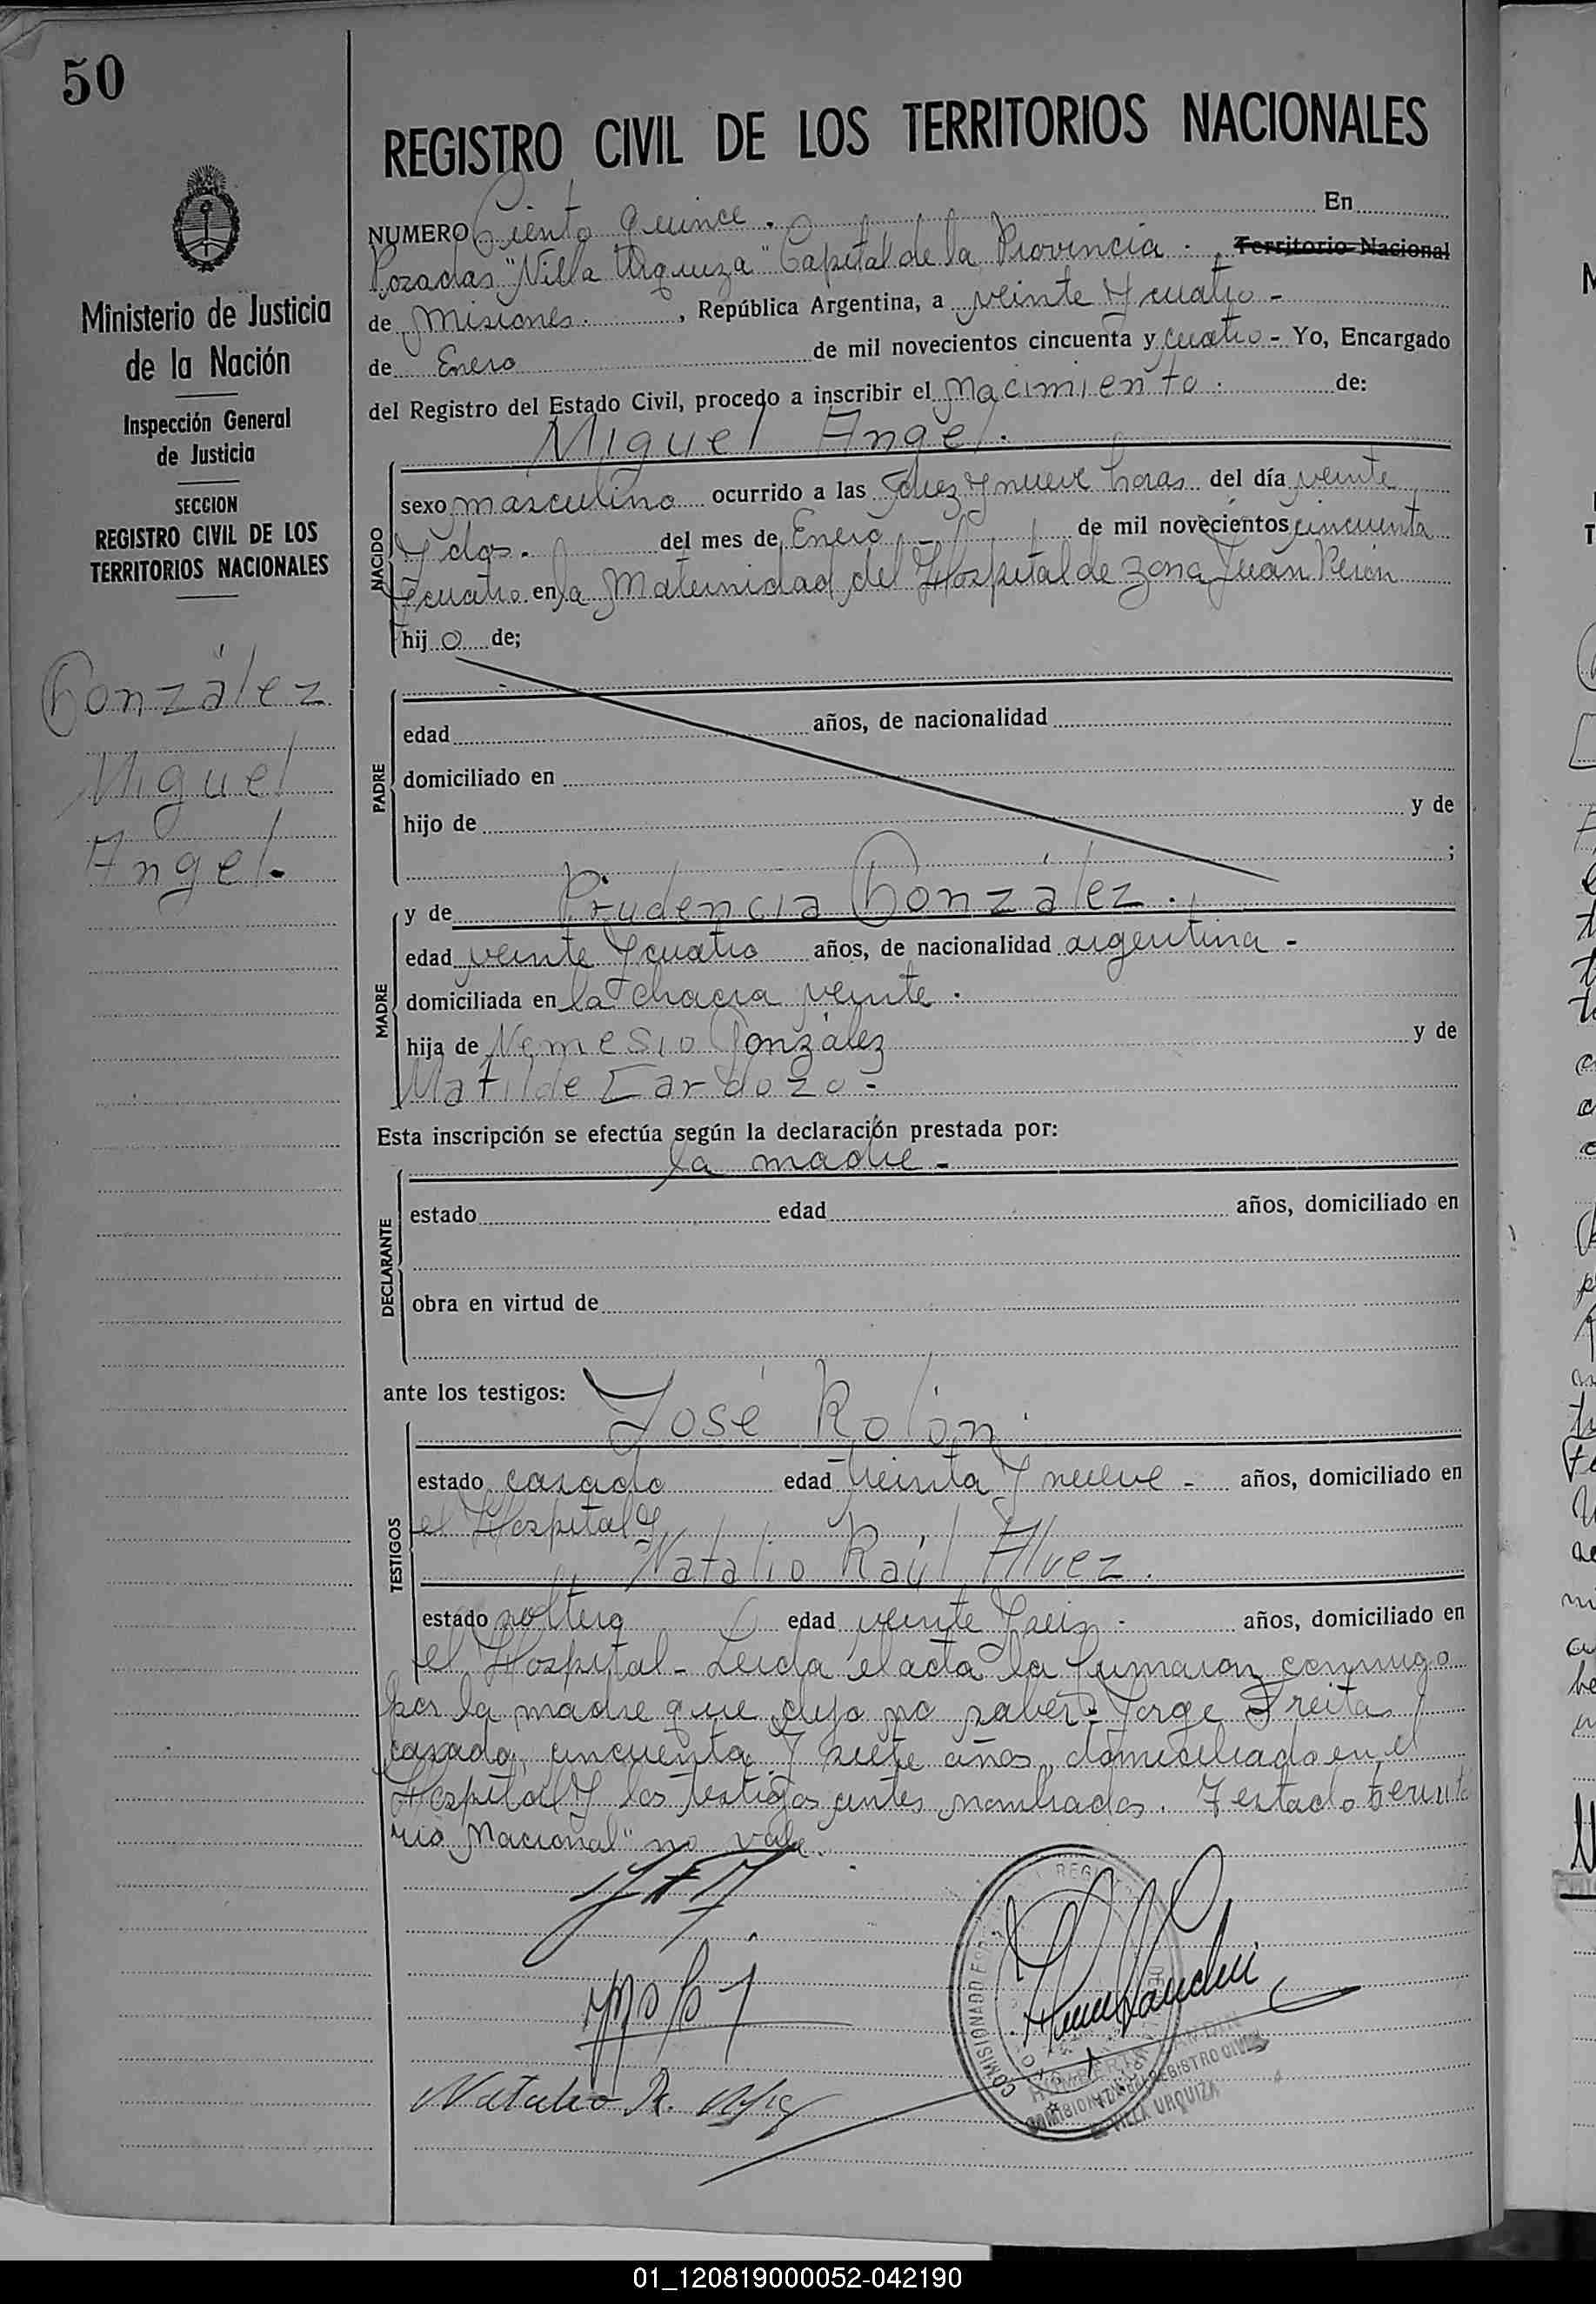 50
REGISTRO CIVIL DE LOS TERRITORIOS NACIONALES
Ministerio de Justicia
de la Nación
Inspección General
de Justicia
SECCION
REGISTRO CIVIL DE LOS
TERRITORIOS NACIONALES
González
Miguel
Angel.
NUMERO Ciento quince. En
Posadas "Villa Urquiza" Capital de la Provincia. Territorio Nacional
de Misiones. , República Argentina, a veinte y cuatro -
de Enero de mil novecientos cincuenta y cuatro - Yo, Encargado
del Registro del Estado Civil, procedo a inscribir el Nacimiento. de:
Miguel Angel.
NACIDO
sexo masculino ocurrido a las diez y nueve horas del día veinte
y dos. del mes de Enero - de mil novecientos cincuenta
y cuatro en la Maternidad del Hospital de zona Juan Perón
hij o de;
PADRE
edad años, de nacionalidad
domiciliado en
hijo de y de
;
MADRE
y de Prudencia González.
edad veinte y cuatro años, de nacionalidad argentina -
domiciliada en la chacra veinte.
hija de Nemesio González y de
Matilde Cardozo -
Esta inscripción se efectúa según la declaración prestada por:
la madre -
DECLARANTE
estado edad años, domiciliado en
obra en virtud de
ante los testigos: José Rolón.
TESTIGOS
estado casado edad treinta y nueve - años, domiciliado en
el Hospital y
Natalio Raúl Alvez.
estado soltero edad veinte y seis - años, domiciliado en
el Hospital - Leida el acta la firmaron conmigo
por la madre que dijo no saber - Jorge Freitas,
casado, cincuenta y siete años, domiciliado en el
Hospital y los testigos antes nombrados. Testado "Territo
rio Nacional" no vale.
Natalio R.
REGI
COMISIONADO
COMISIONADO DEL REGISTRO CIVIL
VILLA URQUIZA
01_120819000052-042190